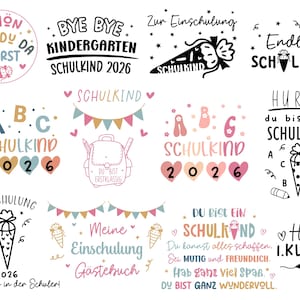 SCHÖN
DU DA
BYE BYE
KINDERGARTEN
SCHULKIND 2026
Zur Einschulung
SCHULKIND
Endl
SCH
A B C
SCHULKIND
2026
SCHULKIND
DU BIST
ERSTKLASSIG
A B
SCHULKIND
2026
HUR
du bis
SCHUL
2026
in der Schule!
Meine
Einschulung
Gästebuch
DU BIST EIN
SCHULKIND
Du kannst alles schaffen.
Sei MUTIG und FREUNDLICH.
Hab ganz viel Spaß.
DU BIST GANZ WUNDERVOLL.
I.KL